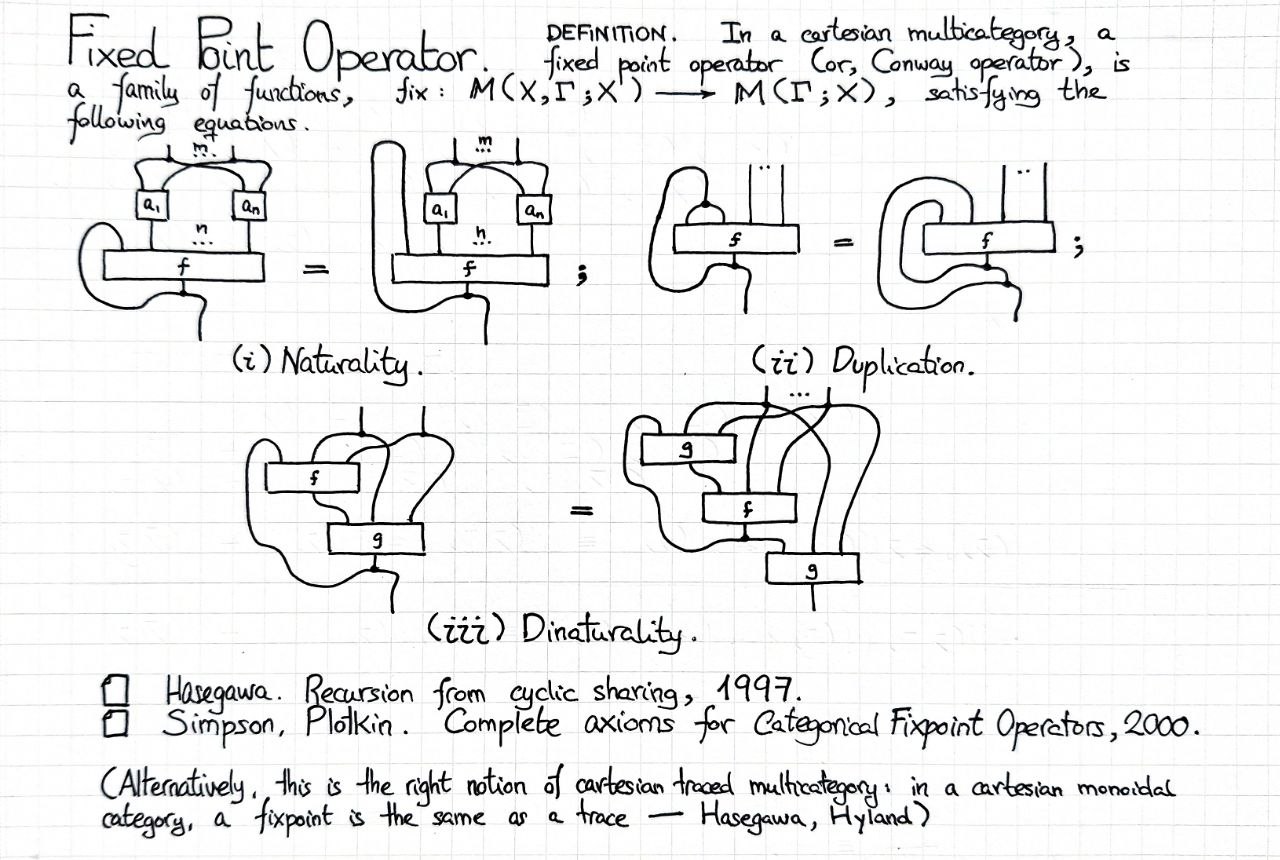 Fixed Point Operator. DEFINITION. In a cartesian multicategory, a
fixed point operator (or, Conway operator), is
a family of functions, fix : M(X,Γ;X) ⟶ M(Γ;X), satisfying the
following equations.
m m
... ... .. ..
a₁ aₙ a₁ aₙ
n n
... ...
f = f ; f = f ;
(i) Naturality. (ii) Duplication.
...
g
f
= f
g
g
(iii) Dinaturality.
Hasegawa. Recursion from cyclic sharing, 1997.
Simpson, Plotkin. Complete axioms for Categorical Fixpoint Operators, 2000.
(Alternatively, this is the right notion of cartesian traced multicategory: in a cartesian monoidal
category, a fixpoint is the same as a trace — Hasegawa, Hyland)